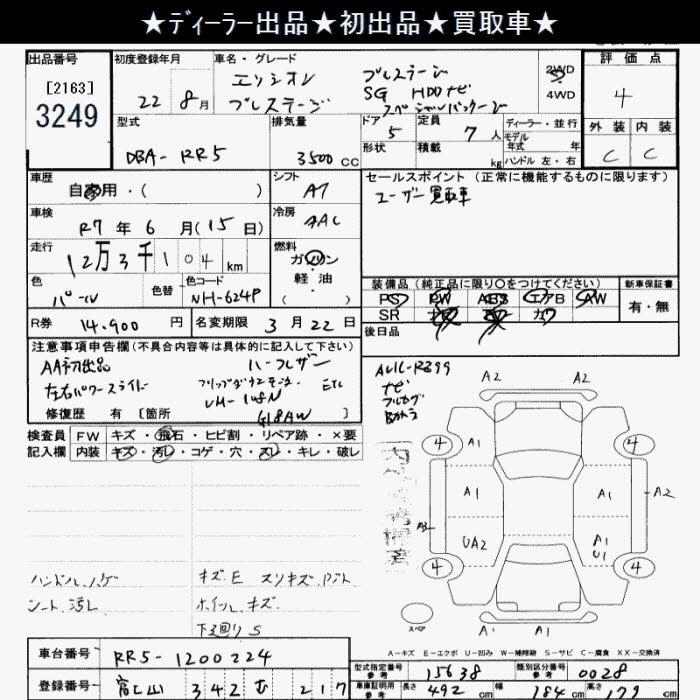 ★ディーラー出品★初出品★買取車★
出品番号
[2163]
3249
初度登録年月
22 8月
車名・グレード
エリシオン
プレステージ
プレステージ
SG HDDナビ
スペシャルパッケージ
2WD
4WD
評価点
4
外装 内装
C C
型式
DBA-RR5
排気量
3500 CC
ドア
5
形状
定員
7人
積載
kg
ディーラー・並行
モデル
年式 年
ハンドル 左・右
車歴
自家用・( )
シフト
AT
車検
R7年6月(15日)
冷房
AAC
走行
12万3千104km
燃料
ガソリン
軽油
( )
色
パール
色替
色コード
NH-624P
R券
14.900円
名変期限
3月22日
セールスポイント(正常に機能するものに限ります)
ユーザー買取車
装備品(純正品に限り〇をつけてください)
PS PW ABS エアB AW
SR ナビ カワ
新車保証書
有・無
後日品
注意事項申告欄(不具合内容等は具体的に記入して下さい)
AA初出品 ハーフレザー
左右パワースライド
フリップダウンモニター ETC
G18AW
修復歴 有[箇所 ]
AVIC-RZ99
ナビ
フルセグ
Bカメラ
検査員
記入欄
FW キズ・飛石・ヒビ割・リペア跡・×要
内装 キズ・汚レ・コゲ・穴・スレ・キレ・破レ
ハンドル ハゲ
シート 汚レ
キズ、E スリキズ、
ホイル、キズ
下廻り S
A2 A2
4 A1 4
A1 A1 A2
A3
UA2 A1
U1
4 4
A1 A1
スペア
A-キズ E-エクボ U-凹み W-補修跡 S-サビ C-腐食 XX-交換済
車台番号
RR5-1200224
登録番号
富山 342 む 217
型式指定番号
参考
15638
類別区分番号
参考
0028
車庫証明用
参考
長さ 492cm
幅 184cm
高さ 179cm